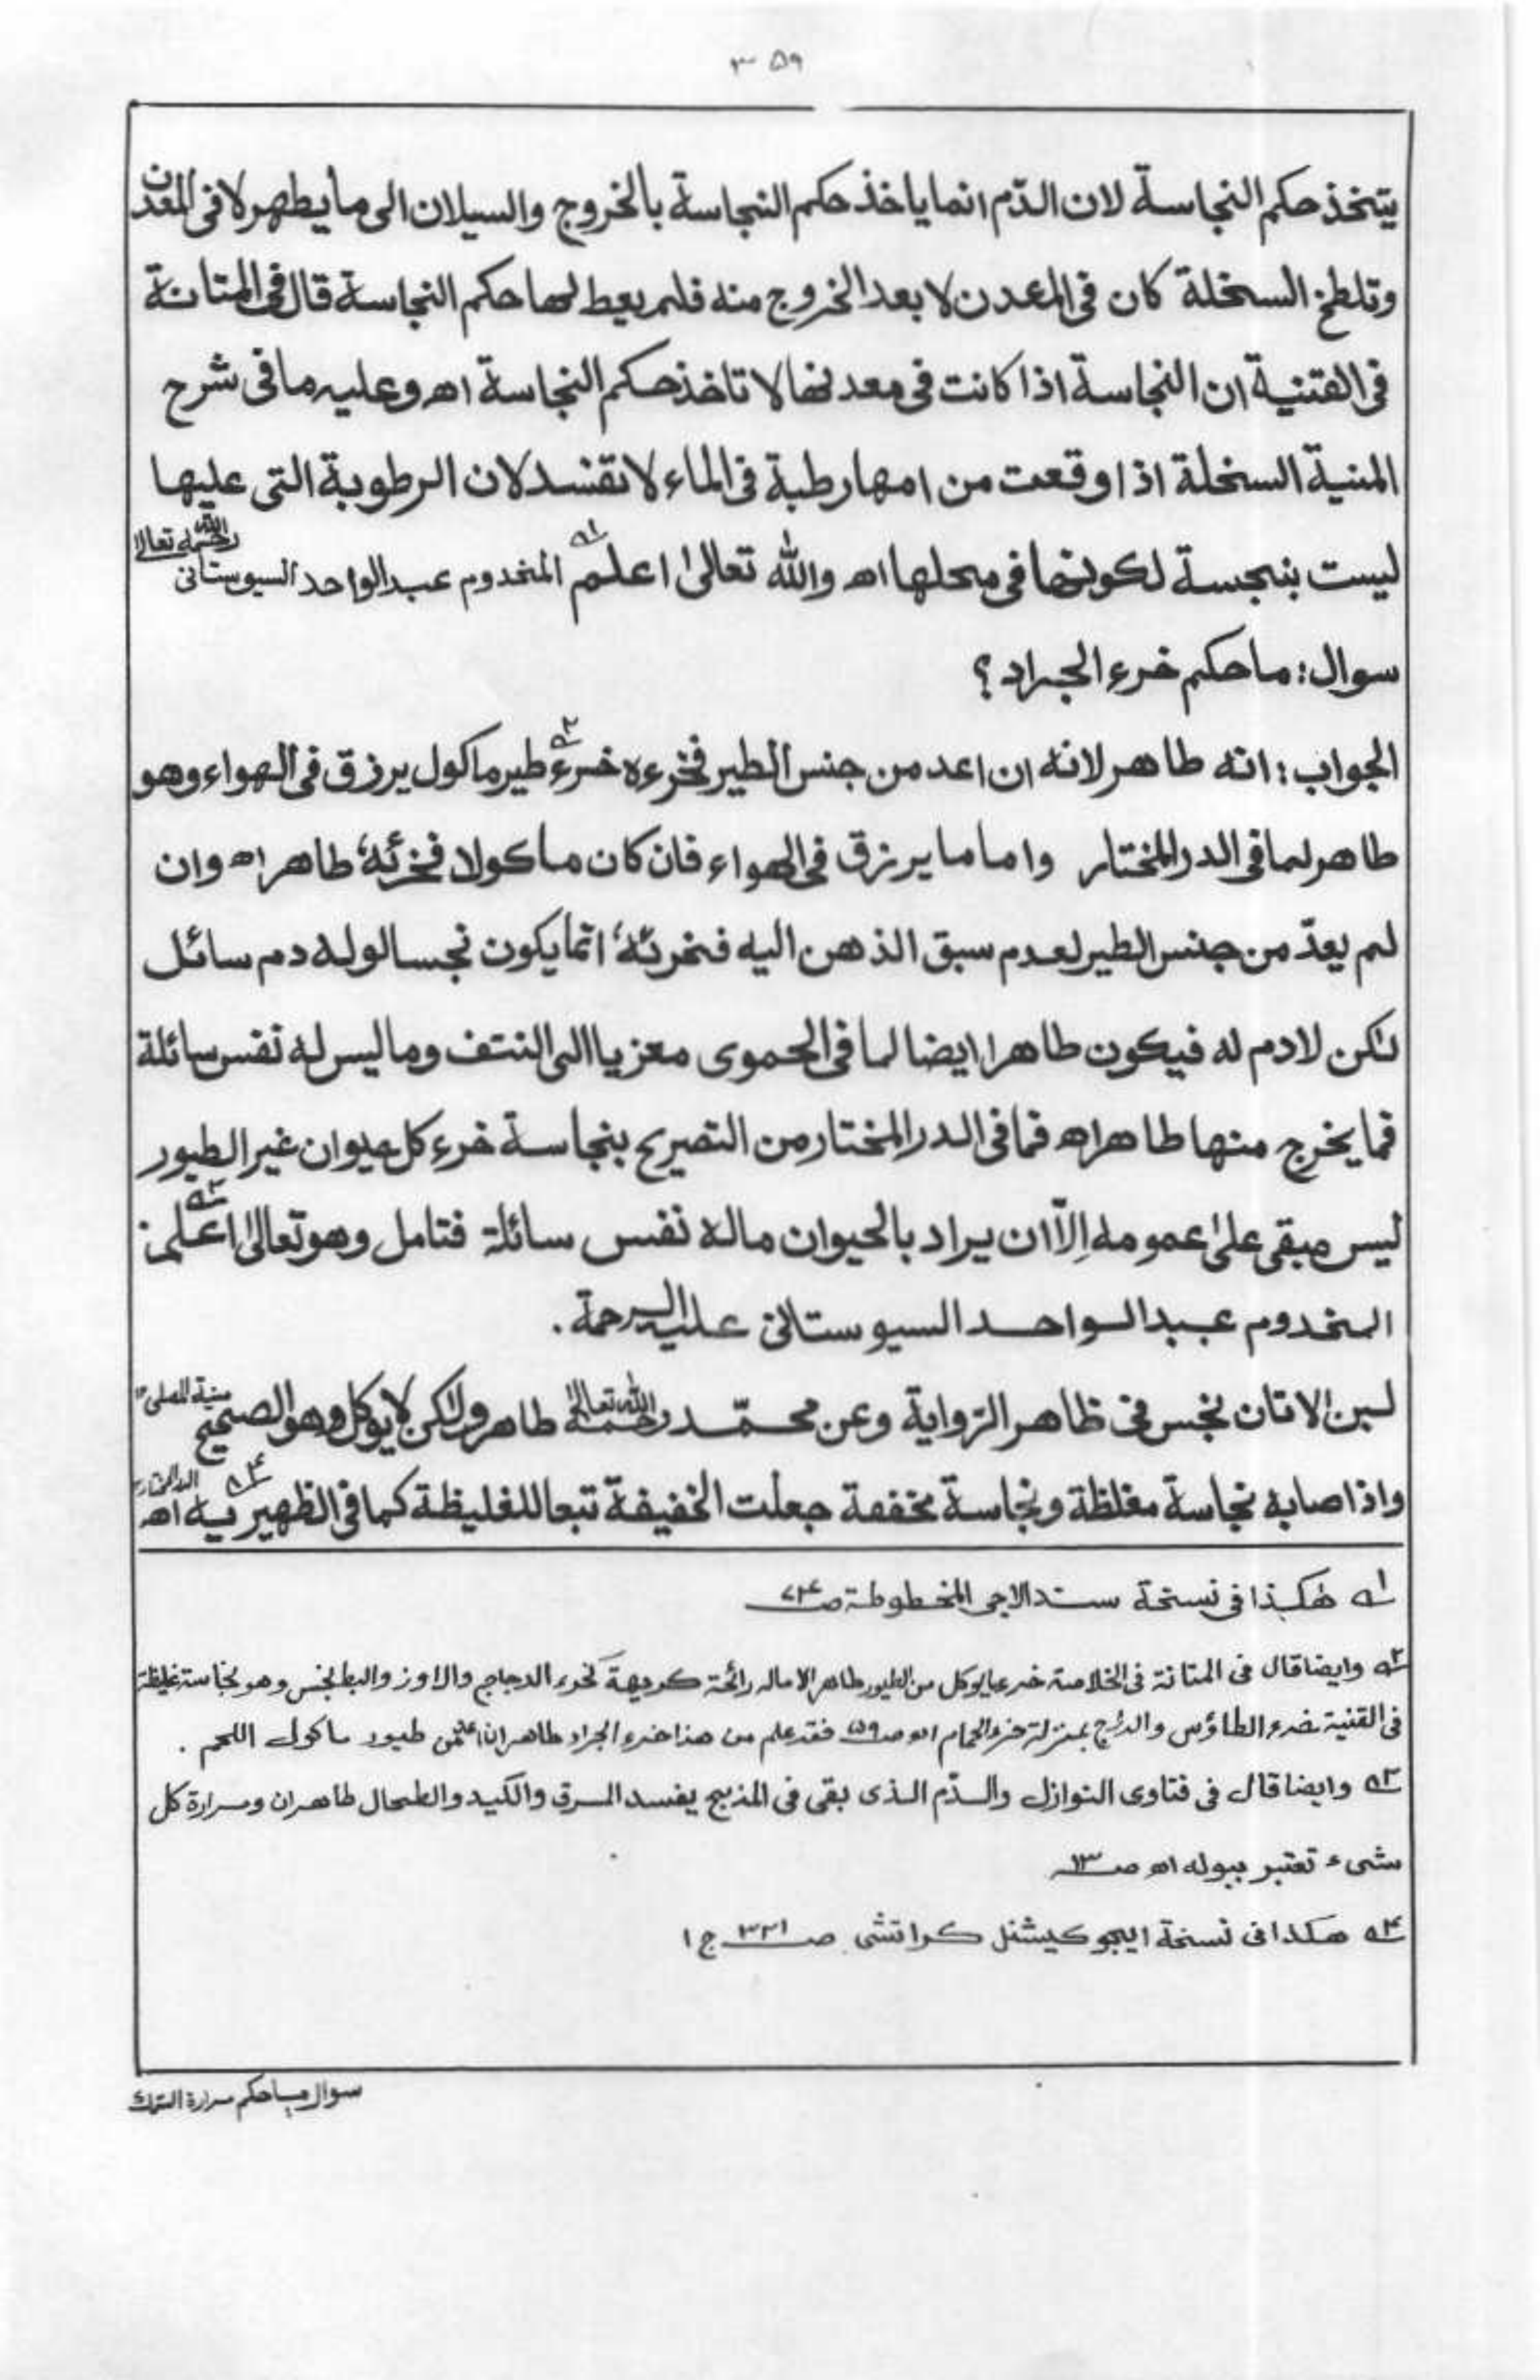 ۳۵۹
يتخذ حكم النجاسة لان الدّم انما ياخذ حكم النجاسة بالخروج والسيلان الى ما يطهر لا فى المعدن
وتلطخ السخلة كان فى المعدن لا بعد الخروج منه فلم يعط لها حكم النجاسة قال فى المتانة
فى القتنية ان النجاسة اذا كانت فى معدنها لا تاخذ حكم النجاسة اه وعليه ما فى شرح
المنية السخلة اذا وقعت من امها رطبة فى الماء لا تفسد لان الرطوبة التى عليها
ليست بنجسة لكونها فى محلها اه والله تعالىٰ اعلم ۱ه المخدوم عبد الواحد السيوستانى رحمه الله تعالىٰ
سوال: ما حكم خرء الجراد؟
الجواب: انه طاهر لانه ان اعد من جنس الطير فخرءه خرء ۲ه طير ماكول يرزق فى الهواء وهو
طاهر لما فى الدر المختار واما ما يرزق فى الهواء فان كان ماكولا فخرئه، طاهر اه وان
لم يعدّ من جنس الطير لعدم سبق الذهن اليه فخرئه، انما يكون نجسا لو له دم سائل
لٰكن لا دم له فيكون طاهرا ايضا لما فى الحموى معزيا الى النتف وما ليس له نفس سائلة
فما يخرج منها طاهر اه فما فى الدر المختار من التصريح بنجاسة خرء كل حيوان غير الطيور
ليس مبقى علىٰ عمومه اِلاّ ان يراد بالحيوان ماله نفس سائلة فتامل وهو تعالىٰ اعلم: ۳ه
المخدوم عبد الواحد السيوستانى عليه الرحمة.
لبن الاتان نجس فى ظاهر الرّواية وعن محمّد رحمه الله تعالىٰ طاهر ولٰكن لا يوكل وهو الصحيح منية المصلى ١٢
واذا صابه نجاسة مغلظة ونجاسة مخففة جعلت الخفيفة تبعا للغليظة كما فى الظهيرية ۴ه اه الدر المختار
۱ه هٰكذا فى نسخة سندالاجى المخطوطة ص ۷۴
۲ه وايضا قال فى المتانة فى الخلاصة خرء ما يوكل من الطيور طاهر الا ماله رائحة كريهة كخرء الدجاج والاوز والبط نجس وهو نجاسة غليظة
فى القنية خرء الطاؤس والدراج بمنزلة خرء الحمام اه ص ۵۹ فقد علم من هذا خرء الجراد طاهر ان اعد من طيور ماكول اللحم.
۳ه وايضا قال فى فتاوى النوازل والدّم الذى بقى فى المذبح يفسد المرق والكبد والطحال طاهران ومرارة كل
شىء تعتبر ببوله اه ص ۱۳
۴ه هكذا فى نسخة ايجوكيشنل كراتشى ص ۳۲۱ ج ۱
سوال ما حكم مرارة السمك